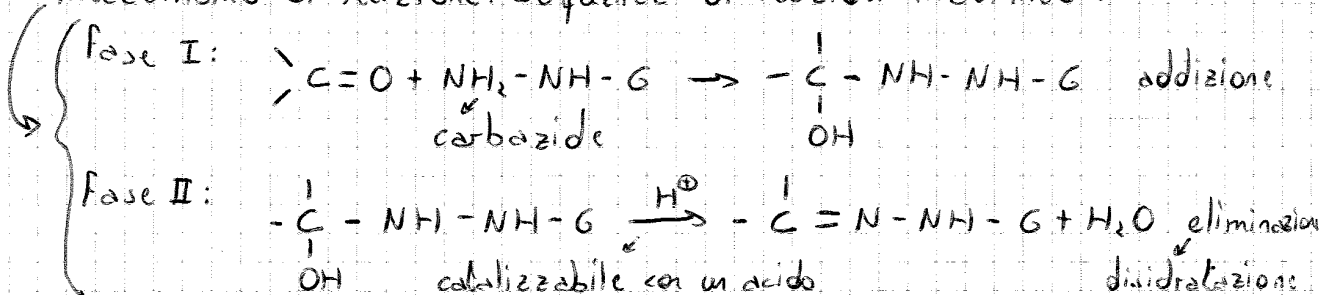 Fase I: C=O + NH₂-NH-G → -C-NH-NH-G addizione
carbazide OH
Fase II: -C-NH-NH-G H⊕ → -C=N-NH-G + H₂O eliminazion
OH catalizzabile con un acido disidratazione